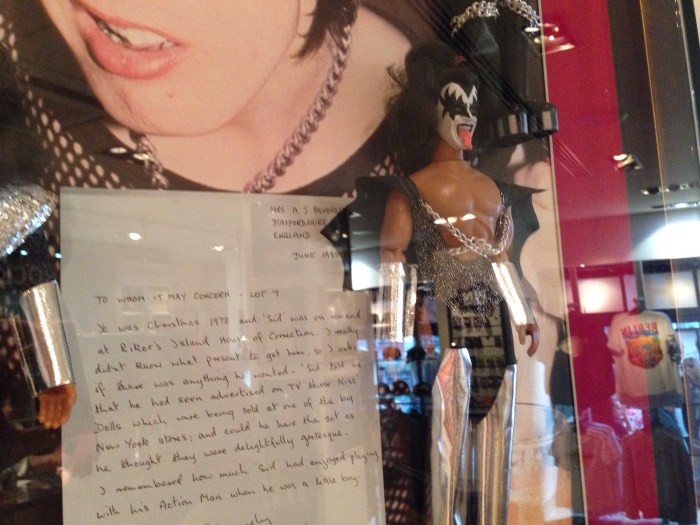 MRS A J BEVERL
STAFFORDSHIRE
ENGLAND
JUNE 198
TO WHOM IT MAY CONCERN - LOT 7
It was Christmas 1978 and 'Sid was on remand
at Riker's Island House of Correction. I really
didn't know what present to get him, so I asked
if there was anything he wanted. 'Sid' told me
that he had seen advertised on TV these Kiss
Dolls which were being sold at one of the big
New York stores; and could he have the set as
he thought they were delightfully grotesque.
I remembered how much 'Sid had enjoyed playing
with his Action Man when he was a little boy.
BERLIN